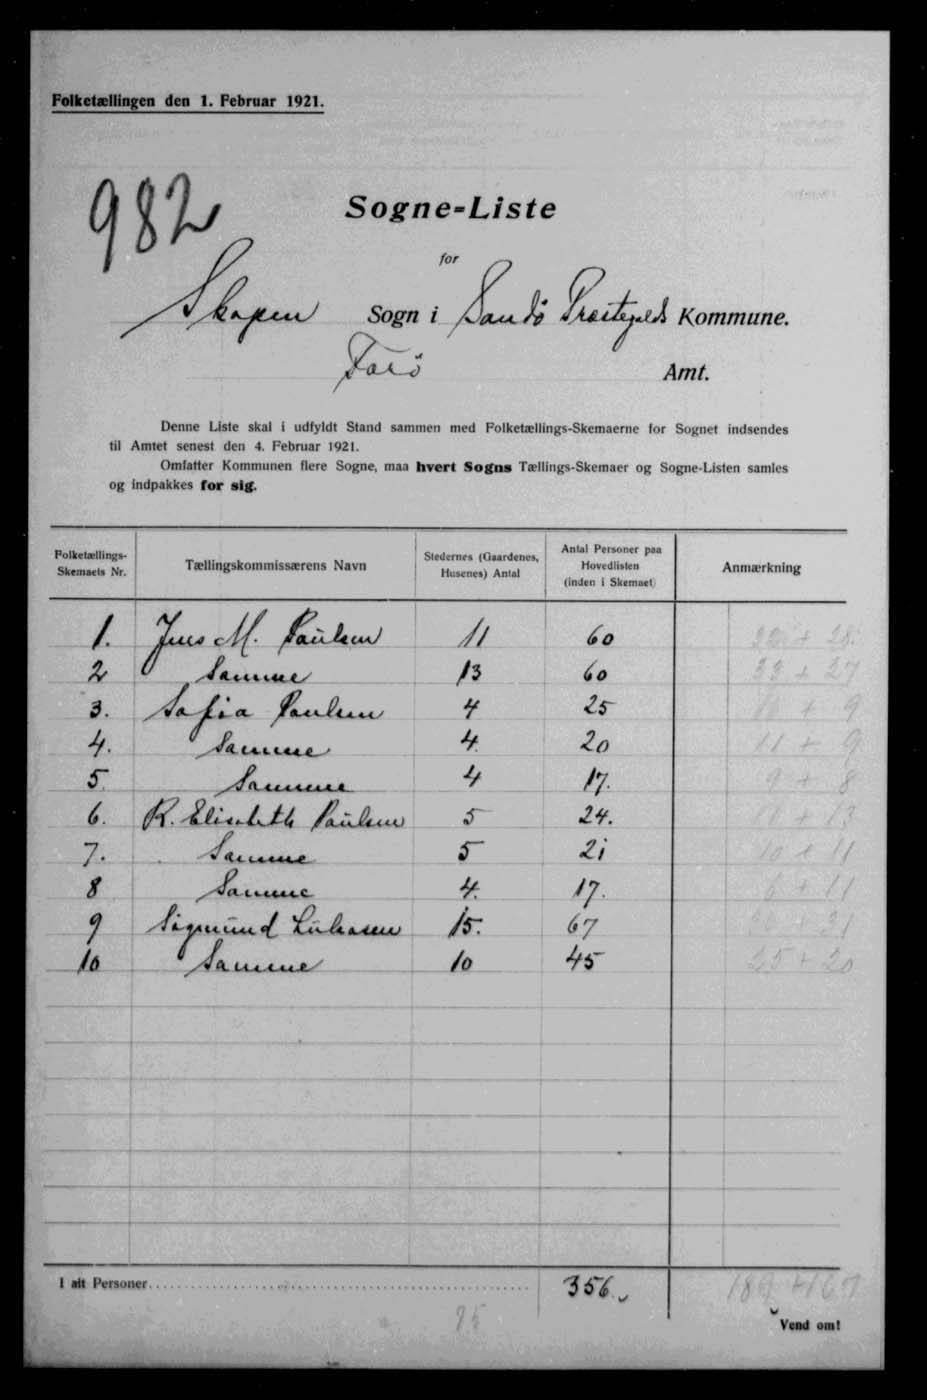 Folketællingen den 1. Februar 1921.
982
Sogne-Liste
for
Skopen Sogn i Sandö Præstegjelds Kommune.
Færö Amt.
Denne Liste skal i udfyldt Stand sammen med Folketællings-Skemaerne for Sognet indsendes
til Amtet senest den 4. Februar 1921.
Omfatter Kommunen flere Sogne, maa hvert Sogns Tællings-Skemaer og Sogne-Listen samles
og indpakkes for sig.
Folketællings-Skemaets Nr. Tællingskommissærens Navn Stedernes (Gaardenes, Husenes) Antal Antal Personer paa Hovedlisten (inden i Skemaet) Anmærkning
1. Jens M. Paulsen 11 60
2 Samme 13 60 33 + 27
3. Sofia Paulsen 4 25 16 + 9
4. Samme 4. 20 11 + 9
5. Samme 4 17. 9 + 8
6. R. Elisabeth Paulsen 5 24. 11 + 13
7. Samme 5 21 10 + 11
8 Samme 4. 17. 6 + 11
9 Sigmund Lukasen 15. 67 36 + 31
10 Samme 10 45 25 + 20
I alt Personer 356 189 + 167
75
Vend om!